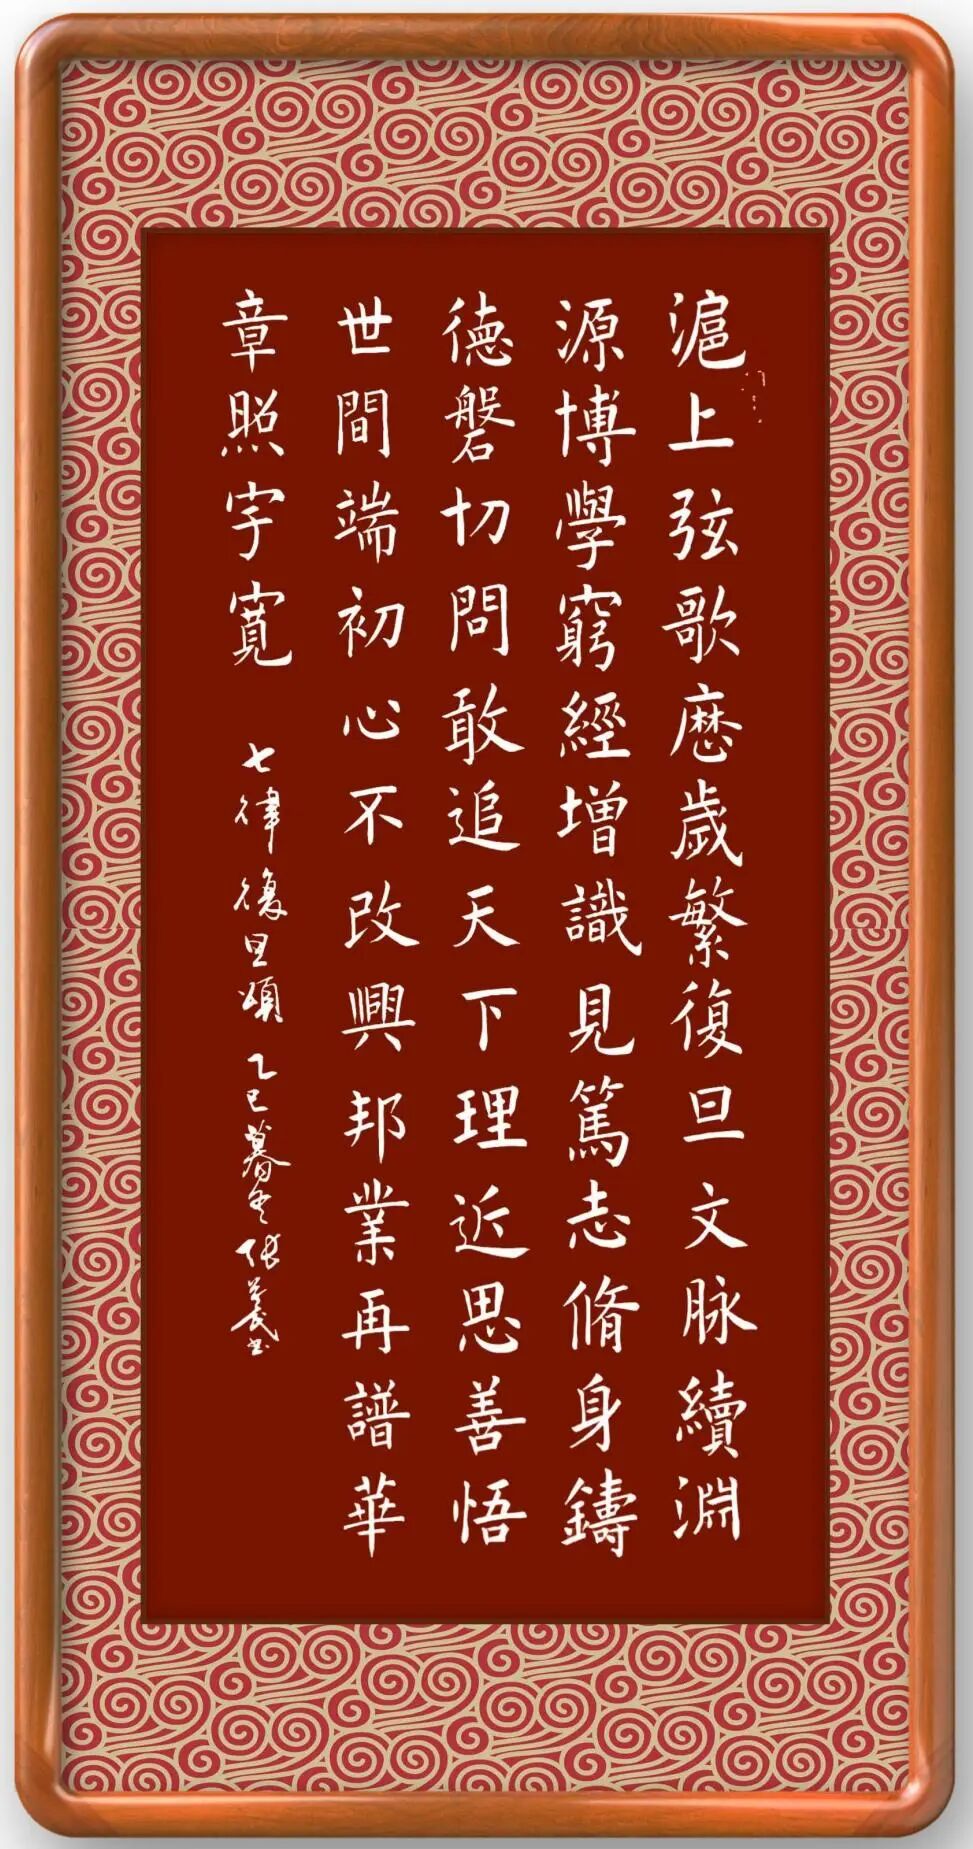 滬上弦歌歷歲繁復旦文脉續淵
源博學窮經增識見篤志脩身鑄
德磐切問敢追天下理近思善悟
世間端初心不改興邦業再譜華
章照宇寬 七律復旦頌 乙巳暮冬張書